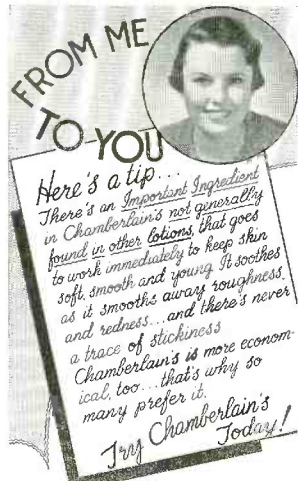 FROM ME
TO YOU
Here's a tip...
There's an Important Ingredient
in Chamberlain's not generally
found in other lotions, that goes
to work immediately to keep skin
soft, smooth and young. It soothes
as it smooths away roughness,
and redness...and there's never
a trace of stickiness
Chamberlain's is more econom-
ical, too...that's why so
many prefer it.
Try Chamberlain's
Today!